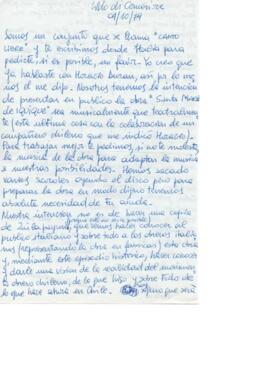 Sesto di Cemonise
09/10/74
Somos un conjunto que se llama "canto
vivo" y te escribimos desde Italia para
pedirte, si es posible, un favor. Yo creo que
ya hablaste con Horacio Duran, así por lo me
nos el me dijo. Nosotros tenemos la intención
de presentar en publico la obra "Santa Maria
de Iquique" sea musicalmente que teatralmen
te (esta ultima cosa con la colaboración de un
compañero chileno que me indicó Horacio).
Para trabajar mejor te pedimos, si no te molesta,
la musica de la obra para adaptar la musica
a nuestras posibilidades. Hemos sacado
varios acordes oyendo el disco pero para
preparar la obra en modo digno tenemos
absoluta necesidad de tu ayuda.
Nuestra intención no es de hacer una copia
de Quilapayun, queremos hacer conocer al
publico italiano y sobre todo a los obreros italia
nos (representando la obra en fabricas) esta obra
y, mediante este episodio histórico, hacer conocer
y darle una vision de la realidad del movimien
to obrero chileno, de lo que hizo y sobre todo de
lo que hace ahora en Chile. que será